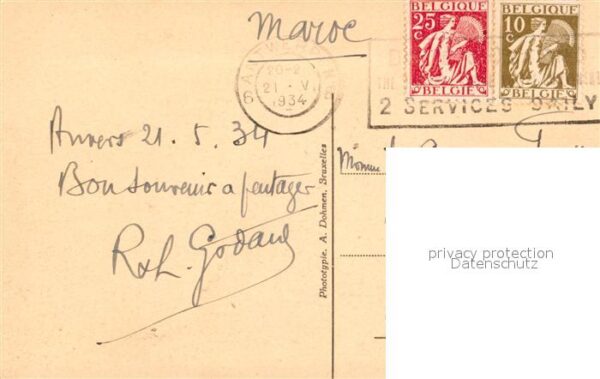 Maroc
BELGIQUE
25
c
BELGIË
BELGIQUE
10
c
BELGIË
ANTWERPEN
6 6
20-2
21 · V
1934
THE
2 SERVICES DAILY
Anvers 21. 5. 34
Bon souvenir a partager
R & L. Godard
Phototypie. A. Dohmen, Bruxelles
privacy protection
Datenschutz